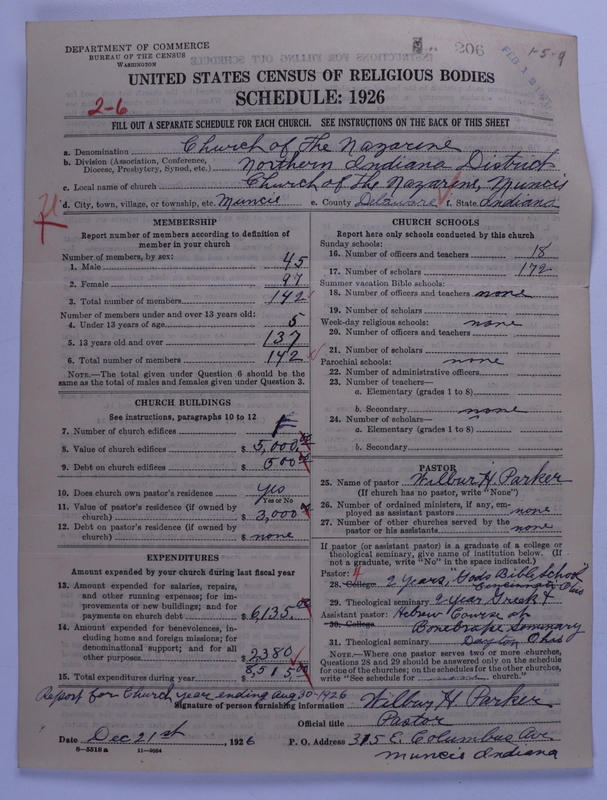 DEPARTMENT OF COMMERCE
BUREAU OF THE CENSUS
WASHINGTON
206
FEB 1
1-5-9
UNITED STATES CENSUS OF RELIGIOUS BODIES
SCHEDULE: 1926
2-6
FILL OUT A SEPARATE SCHEDULE FOR EACH CHURCH. SEE INSTRUCTIONS ON THE BACK OF THIS SHEET
a. Denomination Church of The Nazarene
b. Division (Association, Conference, Diocese, Presbytery, Synod, etc.) Northern Indiana District
c. Local name of church Church of The Nazarene, Muncie
d. City, town, village, or township, etc. Muncie e. County Delaware f. State Indiana
MEMBERSHIP
Report number of members according to definition of
member in your church
Number of members, by sex:
1. Male 45
2. Female 97
3. Total number of members 142
Number of members under and over 13 years old:
4. Under 13 years of age 5
5. 13 years old and over 137
6. Total number of members 142
NOTE.—The total given under Question 6 should be
the same as total of males and females given under Question 3.
CHURCH BUILDINGS
See instructions, paragraphs 10 to 12
7. Number of church edifices
8. Value of church edifices $ 5,000.00
9. Debt on church edifices $ 500.00
10. Does church own pastor's residence yes
Yes or No
11. Value of pastor's residence (if owned by
church) $ 3,000
12. Debt on pastor's residence (if owned by
church) $ none
EXPENDITURES
Amount expended by your church during last fiscal year
13. Amount expended for salaries, repairs,
and other running expenses; for im-
provements or new buildings; and for
payments on church debt $ 6,135.00
14. Amount expended for benevolences, in-
cluding home and foreign missions; for
denominational support; and for all
other purposes $ 2,380
15. Total expenditures during year $ 8,515.00
CHURCH SCHOOLS
Report here only schools conducted by this church
Sunday schools:
16. Number of officers and teachers 18
17. Number of scholars 172
Summer vacation Bible schools:
18. Number of officers and teachers none
19. Number of scholars
Week-day religious schools: none
20. Number of officers and teachers
21. Number of scholars
Parochial schools: none
22. Number of administrative officers
23. Number of teachers—
a. Elementary (grades 1 to 8)
b. Secondary none
24. Number of scholars—
a. Elementary (grades 1 to 8)
b. Secondary
PASTOR
25. Name of pastor Wilbur H. Parker
(If church has no pastor, write "None")
26. Number of ordained ministers, if any, em-
ployed as assistant pastors none
27. Number of other churches served by the
pastor or his assistants none
If pastor (or assistant pastor) is a graduate of a college or
theological seminary, give name of institution below. (If
not a graduate, write "No" in the space indicated.)
Pastor:
28. College 2 years, "Gods Bible School"
Cincinnati Ohio
29. Theological seminary 2 year Greek &
Assistant pastor: Hebrew Course at
30. College Bonebrake Seminary
31. Theological seminary Dayton Ohio
NOTE.—Where one pastor serves two or more churches,
Questions 28 and 29 should be answered only on the schedule
for one of the churches; on the schedules for the other churches,
write "See schedule for church."
Report for Church year ending Aug 30-1926
Signature of person furnishing information Wilbur H. Parker
Official title Pastor
Date Dec 21st, 1926 P. O. Address 315 E. Columbus Ave.
8-5518 a 11-9064 Muncie Indiana